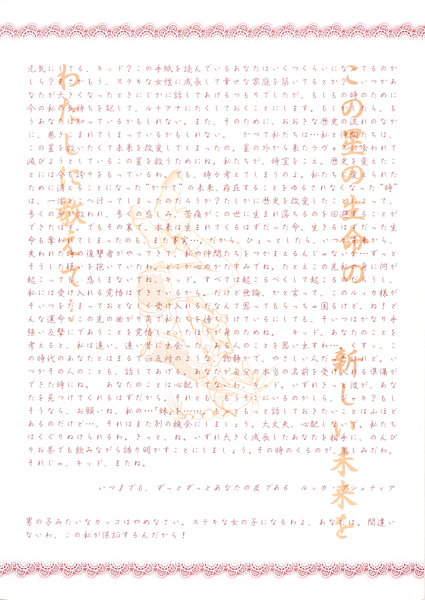 元気にしてる、キッド?この手紙を読んでいるあなたはいくつくらいになってるのか
しら?
もう、ステキな女性に成長して幸せな家庭を築いてるとか?
いつかあ
なたが大きくなったときにじかに話してあげるつもりでしたが、もしもの時のために
今の私の気持ちを記して、ルチアナにたくしておくことにします。
もしかしたら、も
うあなたは知っているかもしれない。また、そのために、おおきな歴史の流れのなか
に、巻きこまれてしまっているかもしれない。
かつて私たちは…私と仲間たちは、
この星を救いたくて未来を改変してしまったの。星の外から来たラヴォスに
滅びようとしているこの星を救うためにね。私たちが、時空をこえ、歴史を変えたこ
とには今も誇りをもっているわ。でも、時々考えてしまうのよ。私たちに変えられた
の未来、存在することをゆるされなくなった“時”
は、一体
へ行ってしまったのだろうか?たしかに歴史を改変したことによって、
多くの命が救われ、多くの悲しみ、苦痛がこの世に生まれ落ちるのを回避することが
できたはず。でもその裏で、本来は生まれてくるはずだった命、生きるはずだった生
命も奪われてしまったのも、また事実…だから、ひょっとしたら、いつか未来から、
失われた時の復讐者がやってきて、私や仲間たちをつかまえるんじゃないか…ずっと
そうした想いを抱いていたわ。
起こっても、悲しまないでね、キッド。すべては起こるべくして起こるのだし、
私には受け入れる覚悟はできているから。だけど無論、かと言って、このルッカ様が
そういつもだまっておとなしく受け入れるだなんて思ってもらっちゃ困るけど、ね!ど
んな運命がこの先の曲がり角で私たちを待ちうけているにしても、そいつはかなり手
強い反撃にであうことを覚悟しといたほうが身のためね。
キッド、あなたのことを
考えると、私は遠い、遠い昔に出会った、ある人のことを思い出すわ…くすっ。こ
の時代のあなたとはまるで正反対のような、物静かで、やさしい人だったけれど。い
つかその人のことも、話してあげる。あなたが自分の本当の名前を受け入れる準備が
できた時にね。
あなたのことは心配してないわ、キッド。いずれきっと彼が、あな
たを見つけてくれるはずだから。それとも、もうそこにいるのかしら、ジャキ?もし
そうなら、お願いね、私の…『妹』を……。もっともっと話しておきたいことは山ほど
あるのだけど…。それはまた別の機会にしましょう。大丈夫、心配しないで。私たち
はくぐりぬけられるわ。きっと、ね。いずれ大きく成長したあなたを相手に、のんび
りお茶でも飲みながら語り明かすことにしましょう。その時のくるのが、楽しみだわ。
それじゃ、キッド、またね。
いつまでも、ずっとずっとあなたの友である ルッカ・アシュティア
男の子みたいなカッコはやめなさい。ステキな女の子になるわよ、あなたは。間違い
ないわ、この私が保証するんだから!
この星の生命の
新しい未来を
わたしに教えて